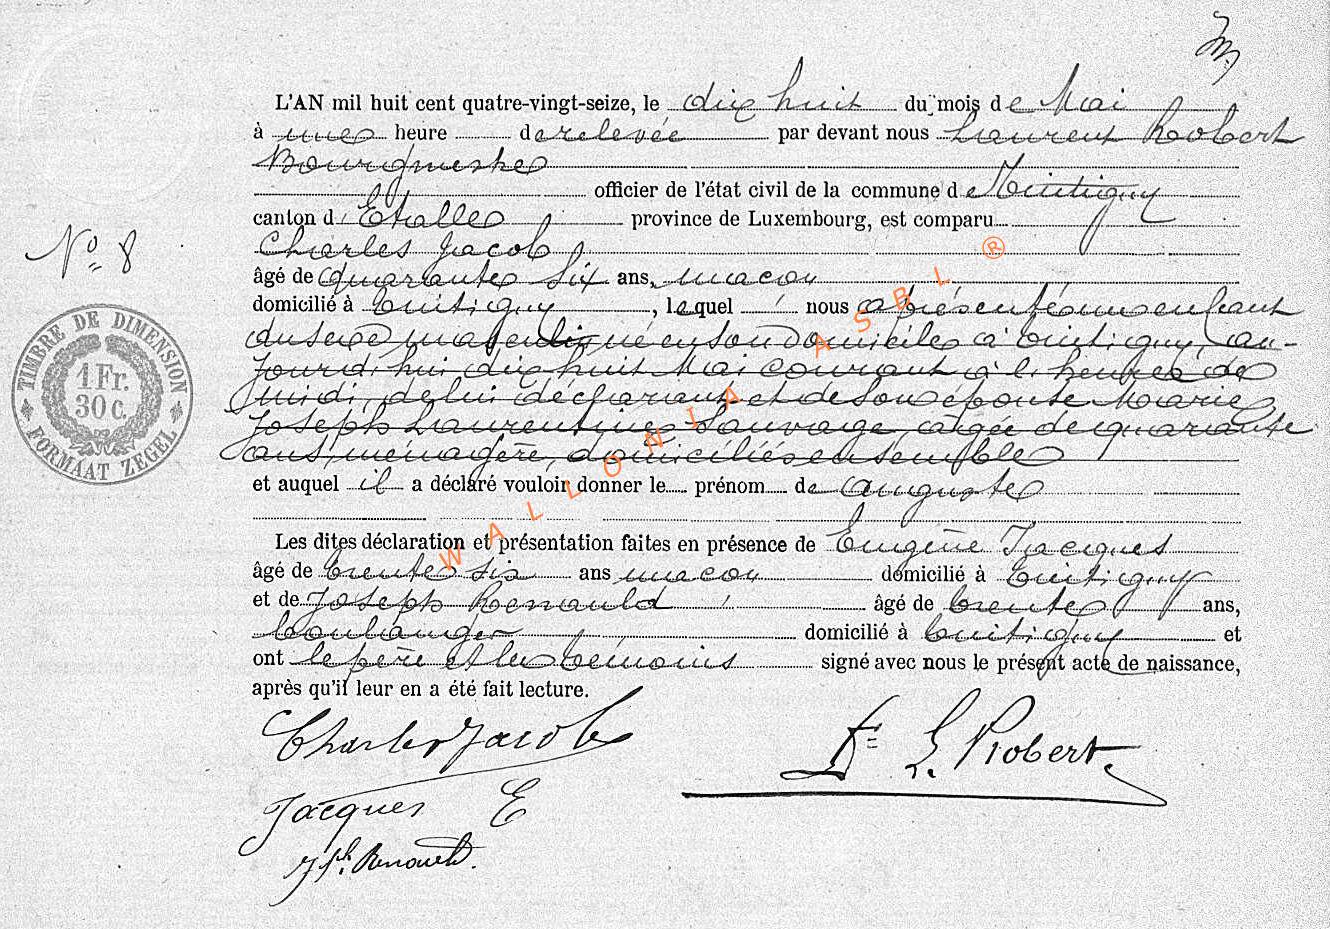 L'AN mil huit cent quatre-vingt-seize, le dix huit du mois de Mai
à une heure de relevée par devant nous Laurent Robert
Bourgmestre
officier de l'état civil de la commune de Tintigny
canton d'Etalle province de Luxembourg, est comparu
Charles Jacob
N° 8
âgé de quarante six ans, maçon
domicilié à Tintigny, lequel nous a présenté un enfant
du sexe masculin né en son domicile à Tintigny, au-
jourd'hui dix huit Mai courant à l'heure de
midi, de lui déclarant et de son épouse Marie
Joseph Laurentine Sauvage, âgée de quarante
ans, ménagère, domiciliés ensemble
et auquel il a déclaré vouloir donner le prénom de Auguste
Les dites déclaration et présentation faites en présence de Eugène Jacques
âgé de trente six ans maçon domicilié à Tintigny
et de Joseph Renauld âgé de trente ans,
boulanger domicilié à Tintigny et
ont le père et les témoins signé avec nous le présent acte de naissance,
après qu'il leur en a été fait lecture.
Charles Jacob
L. Robert
Jacques E
Jph Renauld.
TIMBRE DE DIMENSION
1 Fr.
30 c.
FORMAAT ZEGEL
WALLONIA ASBL ®